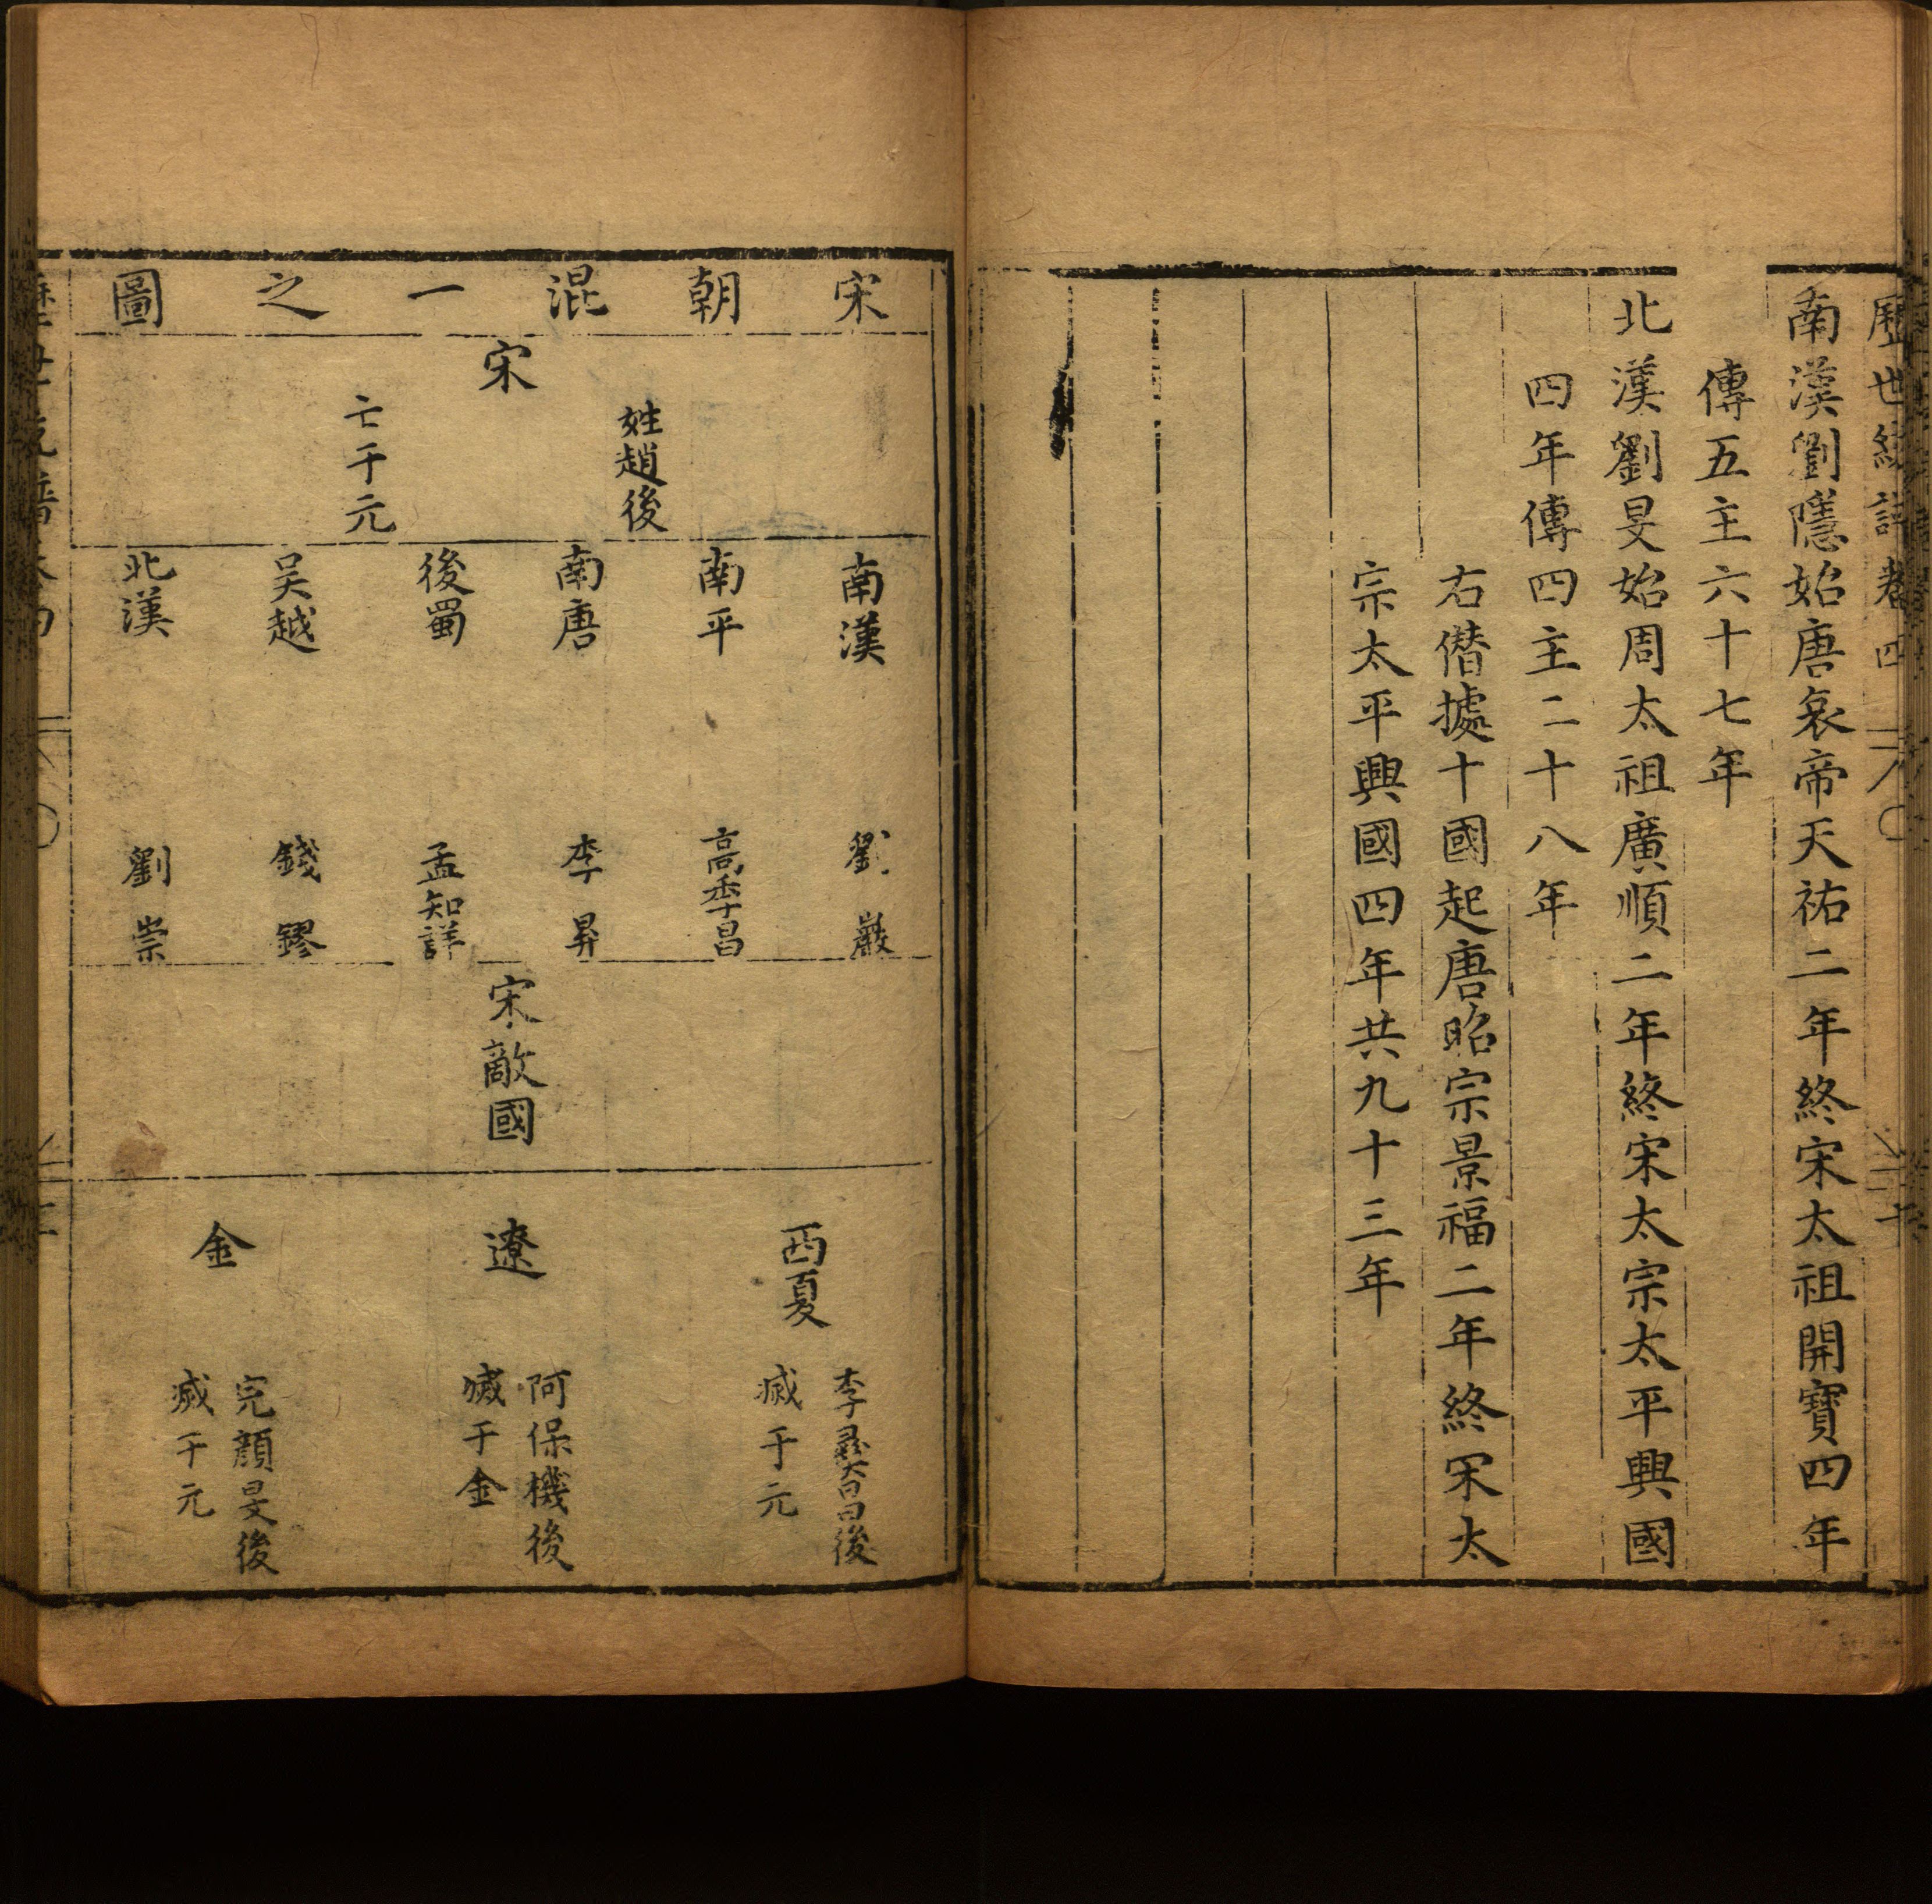 歷世統譜卷四
南漢劉隱始唐哀帝天祐二年終宋太祖開寶四年
傳五主六十七年
北漢劉旻始周太祖廣順二年終宋太宗太平興國
四年傳四主二十八年
右僣據十國起唐昭宗景福二年終宋太
宗太平興國四年共九十三年
宋朝混一之圖
宋
姓趙後
亡于元
南漢 劉巖
南平 高季昌
南唐 李昇
後蜀 孟知詳
吴越 錢鏐
北漢 劉崇
宋敵國
西夏
李彞昌後
滅于元
遼
阿保機後
滅于金
金
完顔旻後
滅于元
歷世統譜卷四